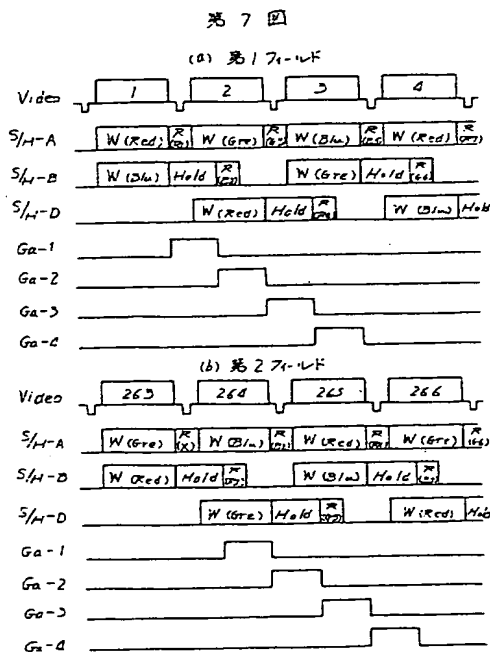 第 7 図
(a) 第1フィールド
Video 1 2 3 4
S/H-A W(Red) R W(Gre) R W(Blu) R W(Red) R
S/H-B W(Blu) Hold R W(Gre) Hold R
S/H-D W(Red) Hold R W(Blu) Hold
Ga-1
Ga-2
Ga-3
Ga-4
(b) 第2フィールド
Video 263 264 265 266
S/H-A W(Gre) R (X) W(Blu) R W(Red) R W(Gre) R
S/H-B W(Red) Hold R W(Blu) Hold R
S/H-D W(Gre) Hold R W(Red) Hold
Ga-1
Ga-2
Ga-3
Ga-4